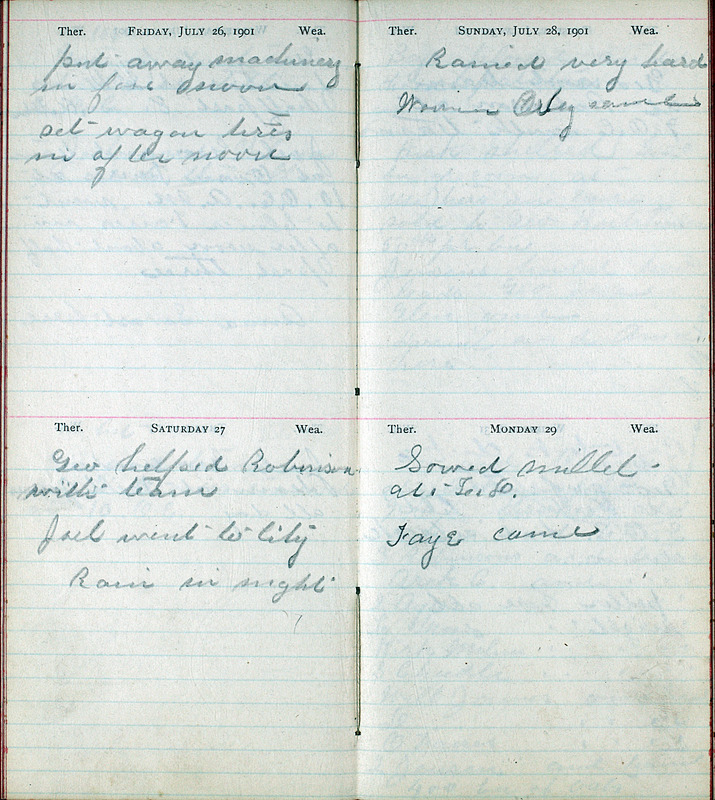 Ther. FRIDAY, JULY 26, 1901 Wea.
put away machinery
in fore noon
set wagon tires
in after noon
Ther. SATURDAY 27 Wea.
Geo helped Robinson
with team
Joel went to City
Rain in night
Ther. SUNDAY, JULY 28, 1901 Wea.
Rained very hard
Ther. MONDAY 29 Wea.
Sowed millet
at
Faye came